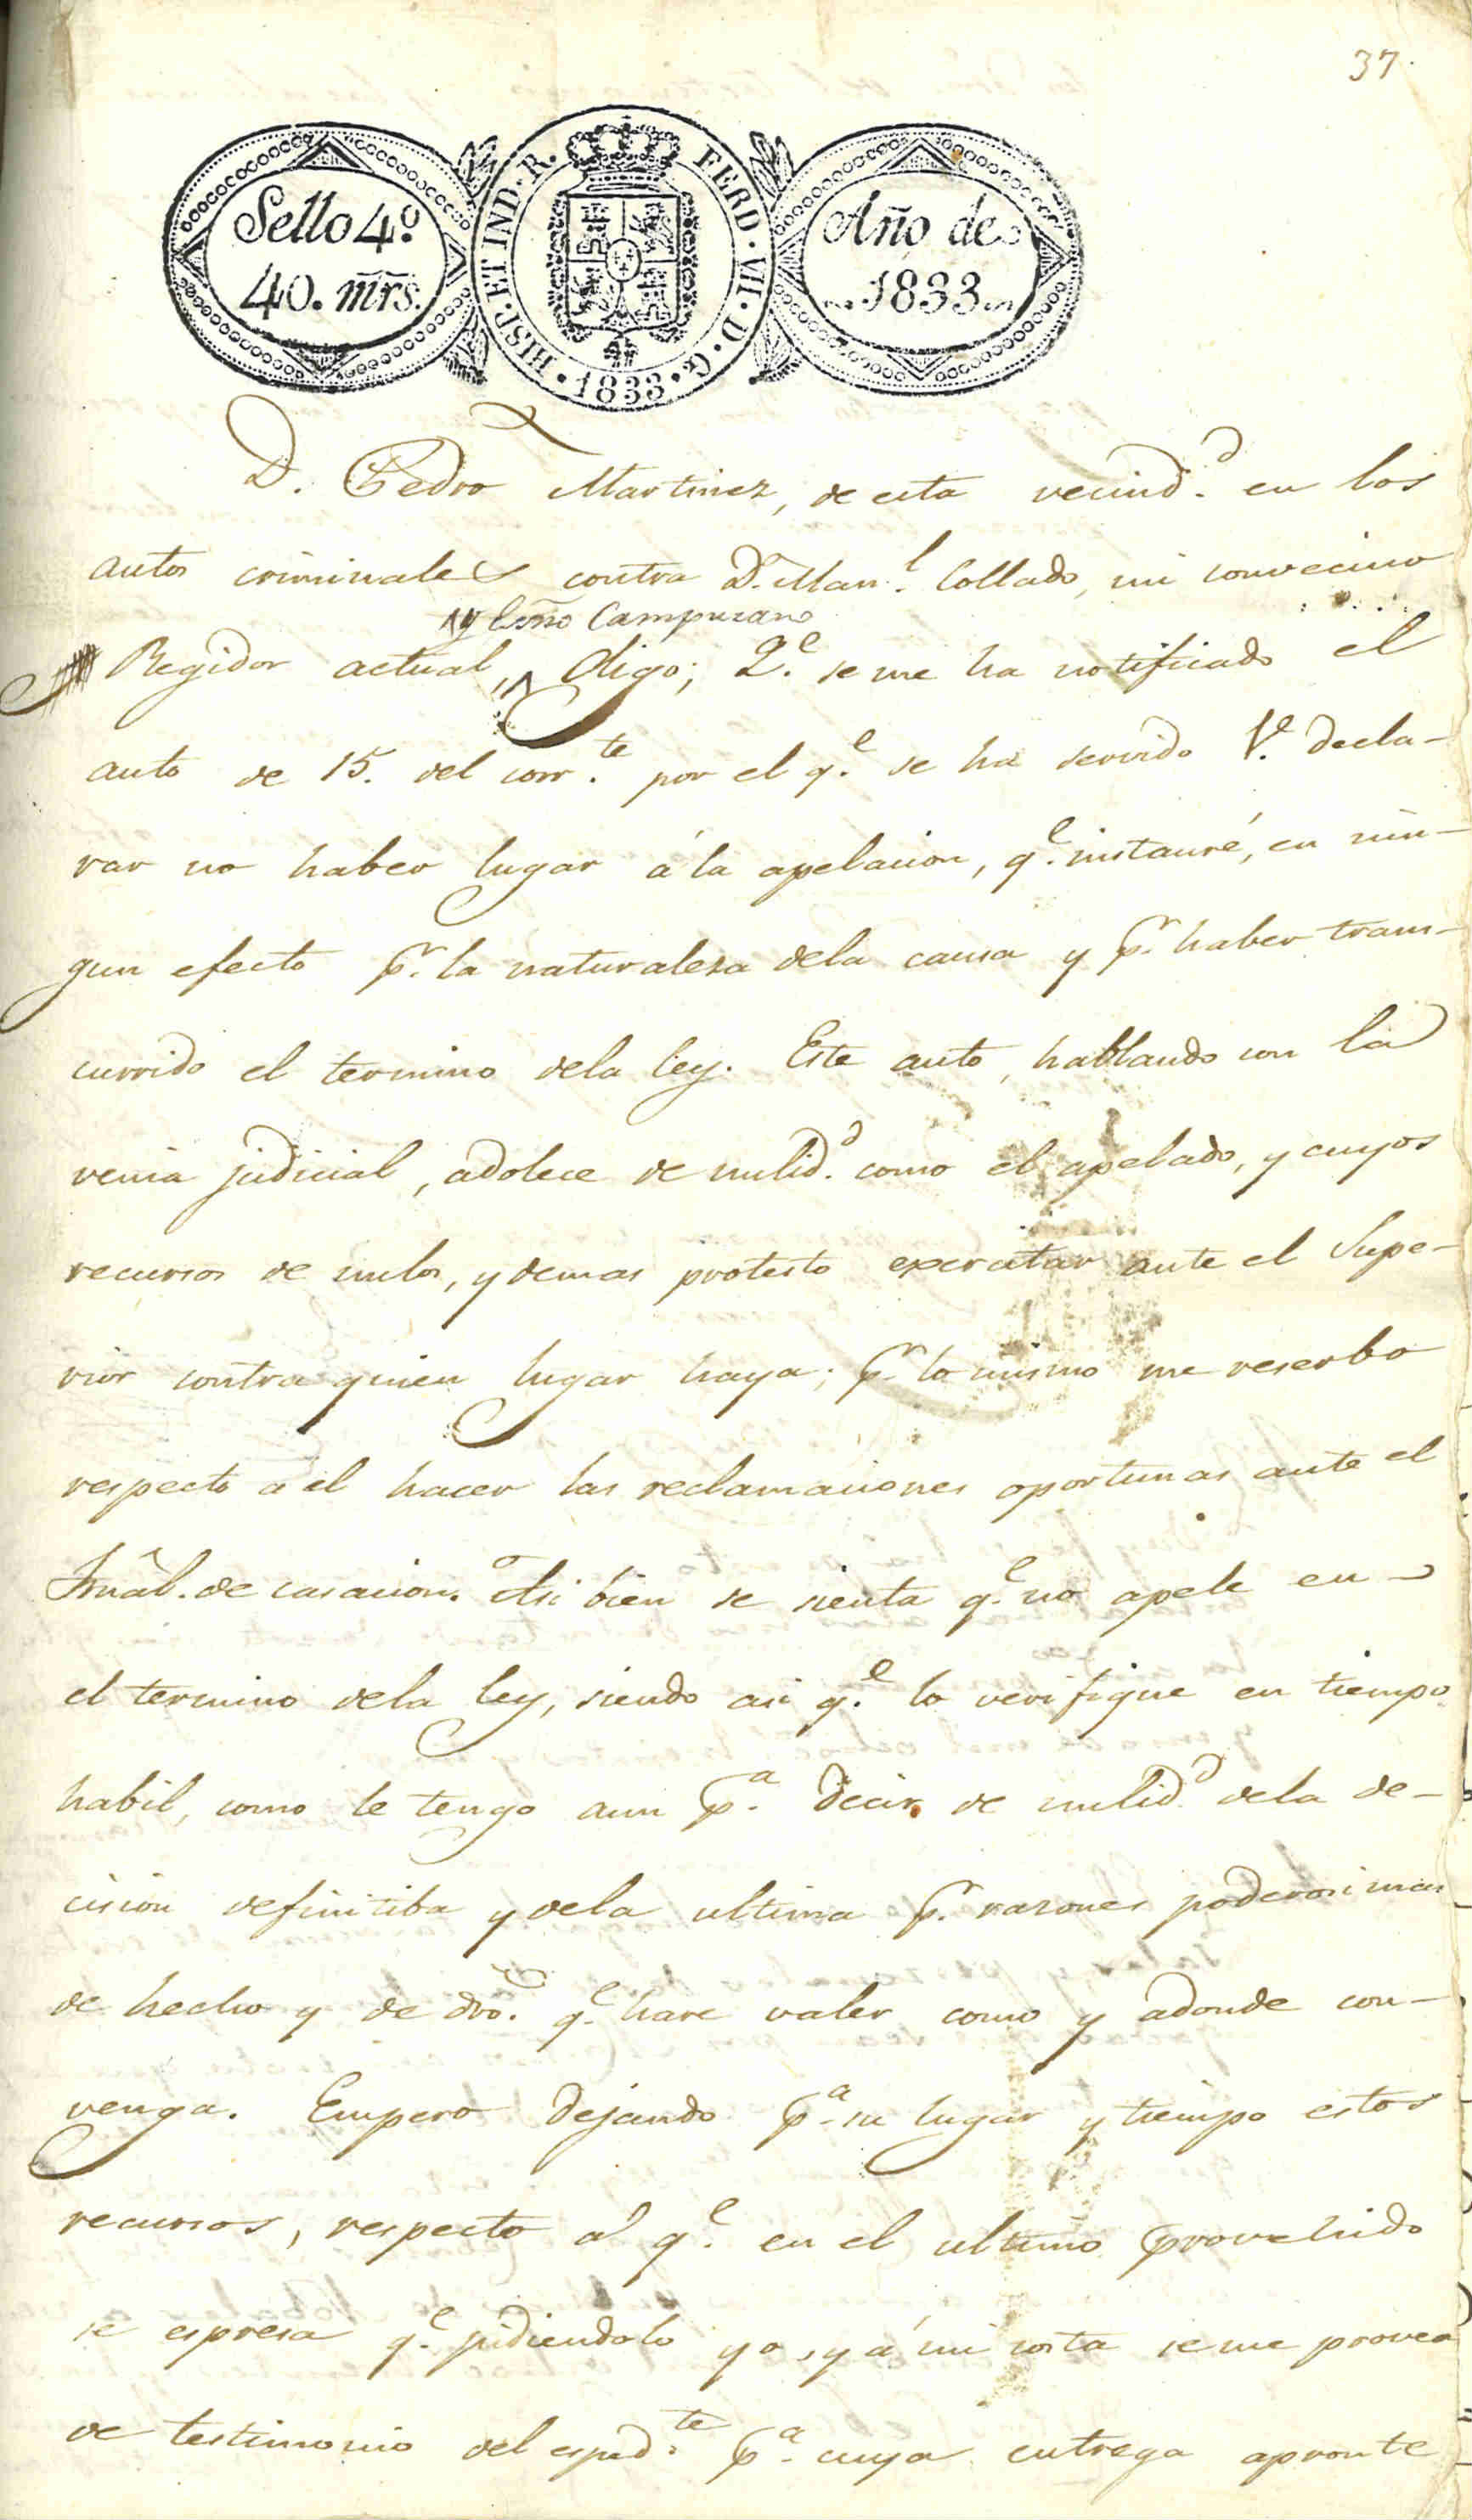 37.
Sello 4º
40. mrs.
HISP. ET IND. R. FERD. VII. D. G. 1833.
Año de
1833
D. Pedro Martinez, de esta vecind.d en los
autos criminales contra D.n Man.l Collado, mi convecino
y Ceño Campuzano
Regidor actual, digo; Q.e se me ha notificado el
auto de 15. del corr.te por el q.e se ha servido V.e decla-
rar no haber lugar á la apelacion, q.e instauré, en nin-
gun efecto p.r la naturaleza dela causa y p.r haber trans-
currido el termino dela ley. Este auto, hablando con la
venia judicial, adolece de nulid.d como el apelado, y cuyos
recursos de nulos, y demas protesto executar ante el Supe-
rior contra quien lugar haya; p.r lo mismo me reserbo
respecto á él hacer las reclamaciones oportunas ante el
Trnâl. de casacion. Asi bien se sienta q.e no apele en
el termino dela ley, siendo asi q.e lo verifique en tiempo
habil, como le tengo aun p.a decir de nulid.d dela de-
cision definitiba y dela ultima p.r razones poderosimas
de hecho y de dro. q.e hare valer como y adonde con-
venga. Empero dejando p.a su lugar y tiempo estos
recursos, respecto á q.e en el ultimo provehido
se espresa q.e pidiendolo yo, y á mi costa se me provea
de testimonio del esped.te p.a cuya entrega apronte